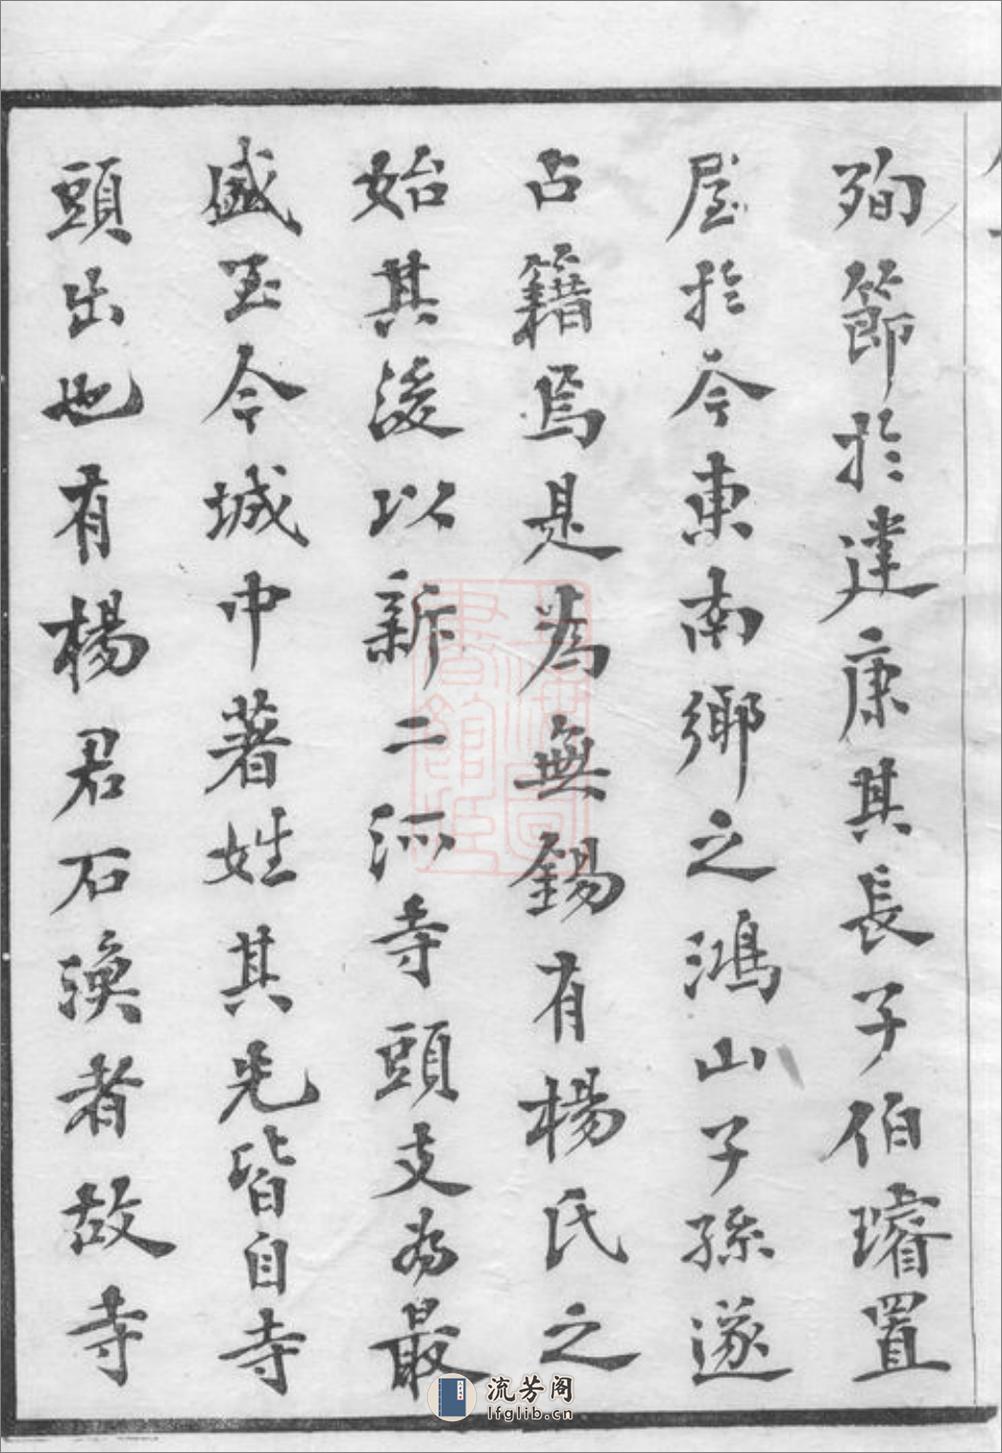 殉節於建康其長子伯璿置
屋於今東南鄉之鴻山子孫遂
占籍焉是為無錫有楊氏之
始其後以新二派寺頭支為最
盛至今城中著姓其先皆自寺
頭出也有楊君石渙者故寺
流芳阁
lfglib.cn